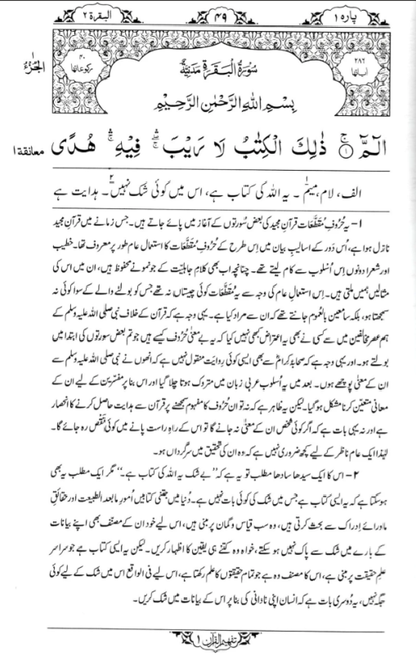 پارہ ۱
۴۹
البقرۃ ۲
الجزء ۱
رکوعاتها ۴۰
سُوْرَۃُ الْبَقَرَۃِ مَدَنِیَّۃٌ
اٰیاتها ۲۸۶
بِسْمِ اللهِ الرَّحْمٰنِ الرَّحِيْمِ
الٓمّٓ ۚ﴿۱﴾ ذٰلِكَ الْكِتٰبُ لَا رَيْبَ ۛۖ فِيْهِ ۛۚ هُدًى معانقة ۱
الف، لام، میم۔ ۱ یہ اللہ کی کتاب ہے، اس میں کوئی شک نہیں۔ ۲ ہدایت ہے
۱ – یہ حُروفِ مُقَطَّعَات قرآنِ مجید کی بعض سُورتوں کے آغاز میں پائے جاتے ہیں۔ جس زمانے میں قرآنِ مجید
نازل ہوا ہے، اُس دَور کے اسالیبِ بیان میں اِس طرح کے حُروفِ مقطَّعات کا استعمال عام طور پر معروف تھا۔ خطیب
اور شعرا دونوں اِس اُسلوب سے کام لیتے تھے۔ چنانچہ اب بھی کلامِ جاہلیّت کے جو نمونے محفوظ ہیں، ان میں اس کی
مثالیں ہمیں ملتی ہیں۔ اِس استعمالِ عام کی وجہ سے یہ مُقطَّعات کوئی چیستاں نہ تھے جس کو بولنے والے کے سوا کوئی نہ
سمجھتا ہو، بلکہ سامعین بالعموم جانتے تھے کہ ان سے مراد کیا ہے۔ یہی وجہ ہے کہ قرآن کے خلاف نبی صلی اللہ علیہ وسلم کے
ہم عصر مخالفین میں سے کسی نے بھی یہ اعتراض کبھی نہیں کیا کہ یہ بے معنی حُروف کیسے ہیں جو تم بعض سورتوں کی ابتدا میں
بولتے ہو۔ اور یہی وجہ ہے کہ صحابۂ کرامؓ سے بھی ایسی کوئی روایت منقول نہیں ہے کہ انھوں نے نبی صلی اللہ علیہ وسلم سے
ان کے معنی پوچھے ہوں۔ بعد میں یہ اُسلوب عربی زبان میں متروک ہوتا چلا گیا اور اس بنا پر مفسّرین کے لیے ان کے
معانی متعین کرنا مشکل ہو گیا۔ لیکن یہ ظاہر ہے کہ نہ تو ان حُروف کا مفہوم سمجھنے پر قرآن سے ہدایت حاصل کرنے کا انحصار
ہے اور نہ یہی بات ہے کہ اگر کوئی شخص ان کے معنی نہ جانے گا تو اس کے راہِ راست پانے میں کوئی نقص رہ جائے گا۔
لہٰذا ایک عام ناظر کے لیے کچھ ضروری نہیں ہے کہ وہ ان کی تحقیق میں سرگرداں ہو۔
۲ – اس کا ایک سیدھا سادھا مطلب تو یہ ہے کہ "بے شک یہ اللہ کی کتاب ہے۔" مگر ایک مطلب یہ بھی
ہو سکتا ہے کہ یہ ایسی کتاب ہے جس میں شک کی کوئی بات نہیں ہے۔ دُنیا میں جتنی کتابیں اُمورِ مابعد الطبیعت اور حقائقِ
ماورائے اِدراک سے بحث کرتی ہیں، وہ سب قیاس و گمان پر مبنی ہیں، اس لیے خود ان کے مصنّف بھی اپنے بیانات
کے بارے میں شک سے پاک نہیں ہو سکتے، خواہ وہ کتنے ہی یقین کا اظہار کریں۔ لیکن یہ ایسی کتاب ہے جو سراسر
علمِ حقیقت پر مبنی ہے، اس کا مصنف وہ ہے جو تمام حقیقتوں کا علم رکھتا ہے، اس لیے فی الواقع اس میں شک کے لیے کوئی
جگہ نہیں، یہ دُوسری بات ہے کہ انسان اپنی نادانی کی بنا پر اس کے بیانات میں شک کریں۔
تفہیم القرآن ۱